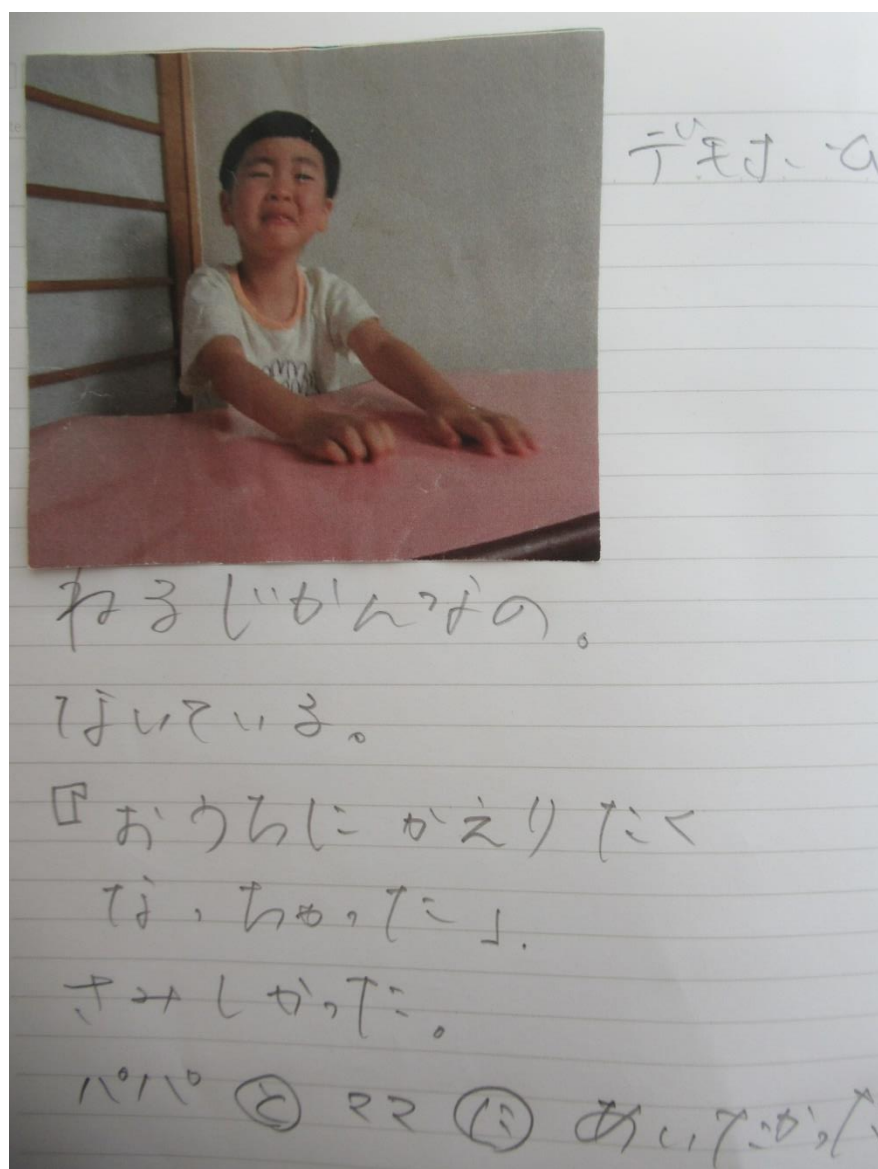 ねるじかんなの。
ないている。
『おうちにかえりたく
なっちゃった」.
さみしかった。
パパとママにあいたかった